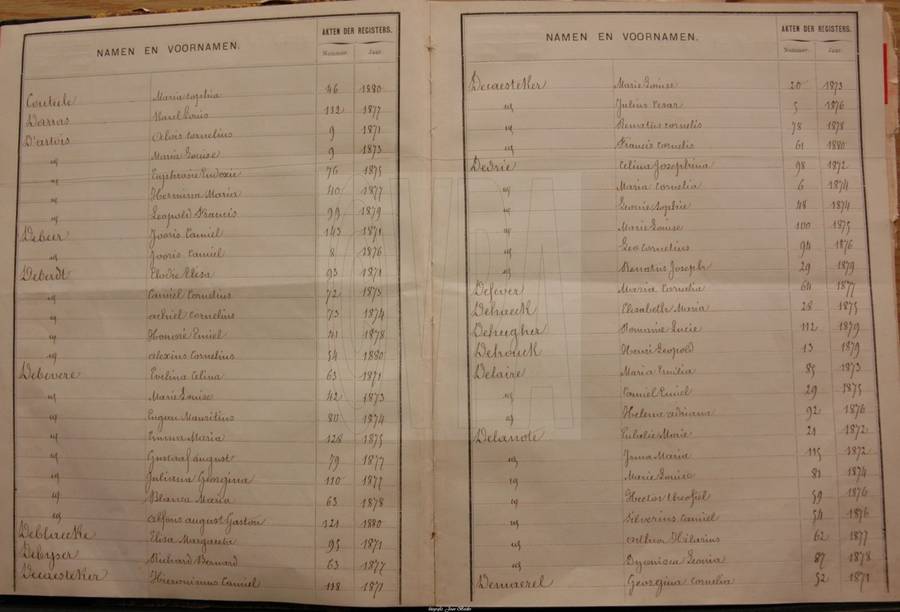 NAMEN EN VOORNAMEN.
AKTEN DER REGISTERS.
Nummer. Jaar.
Maria Sophia 46 1880
Darras Karel Louis 132 1877
D'artois Alois Cornelius 9 1871
" Maria Louise 9 1873
" Euphrasie Eudoxie 76 1875
" Herminia Maria 40 1877
" Leopold Francis 99 1879
Debeer Jooris Camiel 143 1871
" Jooris Camiel 8 1876
Deberdt Elodie Elisa 93 1871
" Camiel Cornelius 72 1873
" Achiel Cornelius 73 1874
" Honoré Emiel 41 1878
" Alexius Cornelius 54 1880
Debevere Evelina Celina 63 1871
" Marie Louise 42 1873
" Eugeen Mauritius 80 1874
" Emma Maria 128 1875
" Gustaaf August 79 1877
" Juliana Georgina 110 1877
" Blanca Maria 63 1878
" Alfons August Gaston 121 1880
Elisa Margarete 95 1871
Debyser Richard Bernard 63 1877
Decaesteker Hieronimus Camiel 118 1871
NAMEN EN VOORNAMEN.
AKTEN DER REGISTERS.
Nummer. Jaar.
Decaesteker Marie Louise 20 1873
" Julius Cesar 5 1876
" Renatus Cornelis 78 1878
" Francis Cornelis 61 1880
Dedrie Celina Josephina 98 1872
" Maria Cornelia 6 1874
" Leonie Sophie 48 1874
" Marie Louise 100 1875
" Leo Cornelius 94 1876
" Renatus Joseph 29 1879
Defever Maria Cornelia 64 1877
Dehaeck Elisabeth Maria 28 1875
Romanie Lucie 112 1879
Dehouck Henri Leopold 13 1879
Delaire Maria Emilia 85 1873
" Camiel Emiel 29 1875
" Helena Adriana 92 1876
Delanote Eulalie Marie 21 1872
" Irma Maria 115 1872
" Marie Louise 81 1874
" Hector Theofiel 59 1876
" Silverius Camiel 54 1876
" Arthur Hilarius 62 1877
" Leonia 87 1878
Demaerel Georgina Cornelia 52 1871